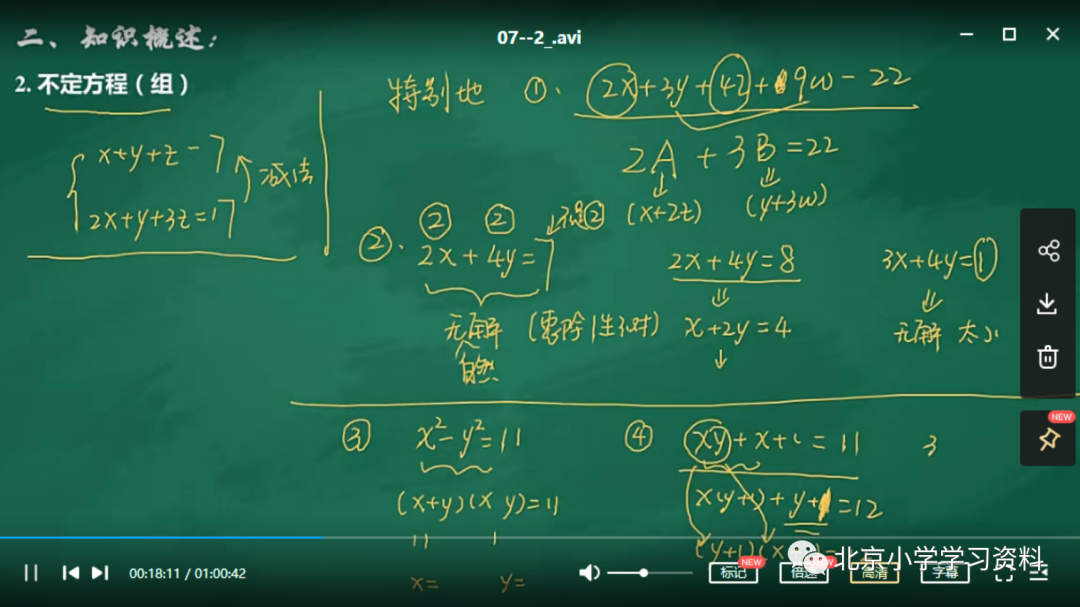 07--2_.avi
二、知识概述：
2. 不定方程（组）
特别地 ①. 2x+3y+4z+9w-22
2A + 3B=22
(x+2z) (y+3w)
x+y+z-7
2x+y+3z=17
减法
② ②
②. 2x+4y=7
无解 (整除性3对)
自然
2x+4y=8
x+2y=4
3x+4y=1
无解 太小
③ x²-y²=11
(x+y)(x y)=11
11 1
x= y=
④ xy+x+ =11 3
x(y+1)+y+1=12
(y+1)(x
北京小学学习资料
00:18:11 / 01:00:42
标记 NEW
倍速
高清
字幕
NEW